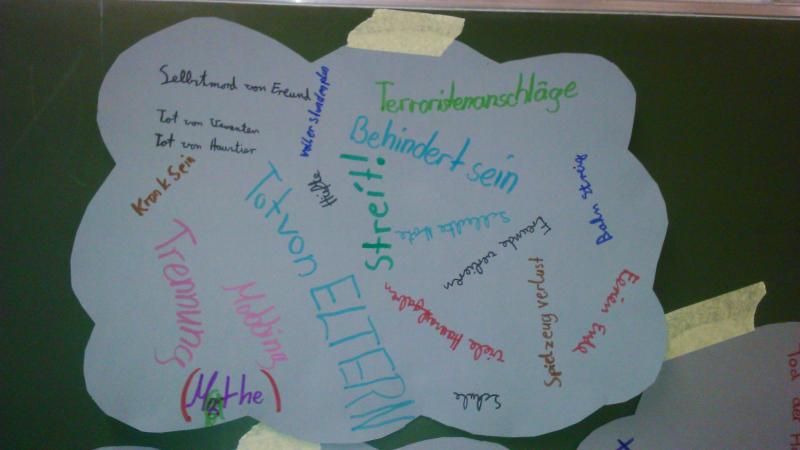 Selbstmord von Freund
Tot von Verwanten
Tot von Haustier
voller stundenplan
Terroristenanschläge
Behindert sein
Krank sein
Hilfe
Streit!
Bahn Streik
Tot von
ELTERN
Schlechte Note
Freunde verliern
Trennung
Mobbing
Viele Hausaufgaben
Spielzeug verlust
Ferien Ende
(Mathe)
Schule
Tod der